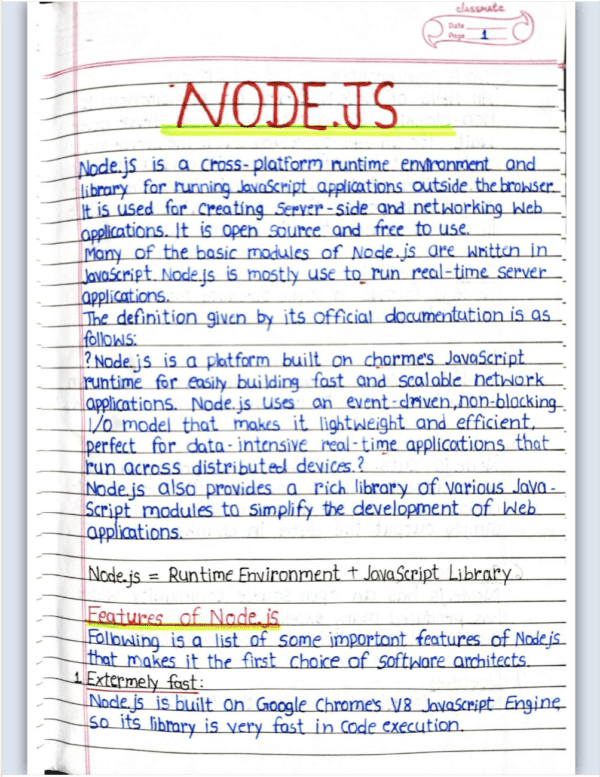 classmate
Date
Page 1
NODE.JS
Node.js is a cross-platform runtime environment and
library for running JavaScript applications outside the browser
It is used for creating Server-side and networking Web
applications. It is open source and free to use.
Many of the basic modules of Node.js are written in
JavaScript. Node.js is mostly use to run real-time server
applications.
The definition given by its official documentation is as
follows:
?Node.js is a platform built on chorme's JavaScript
runtime for easily building fast and scalable network
applications. Node.js uses an event-driven, non-blocking
I/O model that makes it lightweight and efficient,
perfect for data-intensive real-time applications that
run across distributed devices.?
Node.js also provides a rich library of various Java-
Script modules to simplify the development of Web
applications.
Node.js = Runtime Environment + JavaScript Library
Features of Node.js
Following is a list of some important features of Node.js
that makes it the first choice of software architects.
1. Extermely fast:
Node.js is built on Google Chrome's V8 JavaScript Engine,
so its library is very fast in code execution.